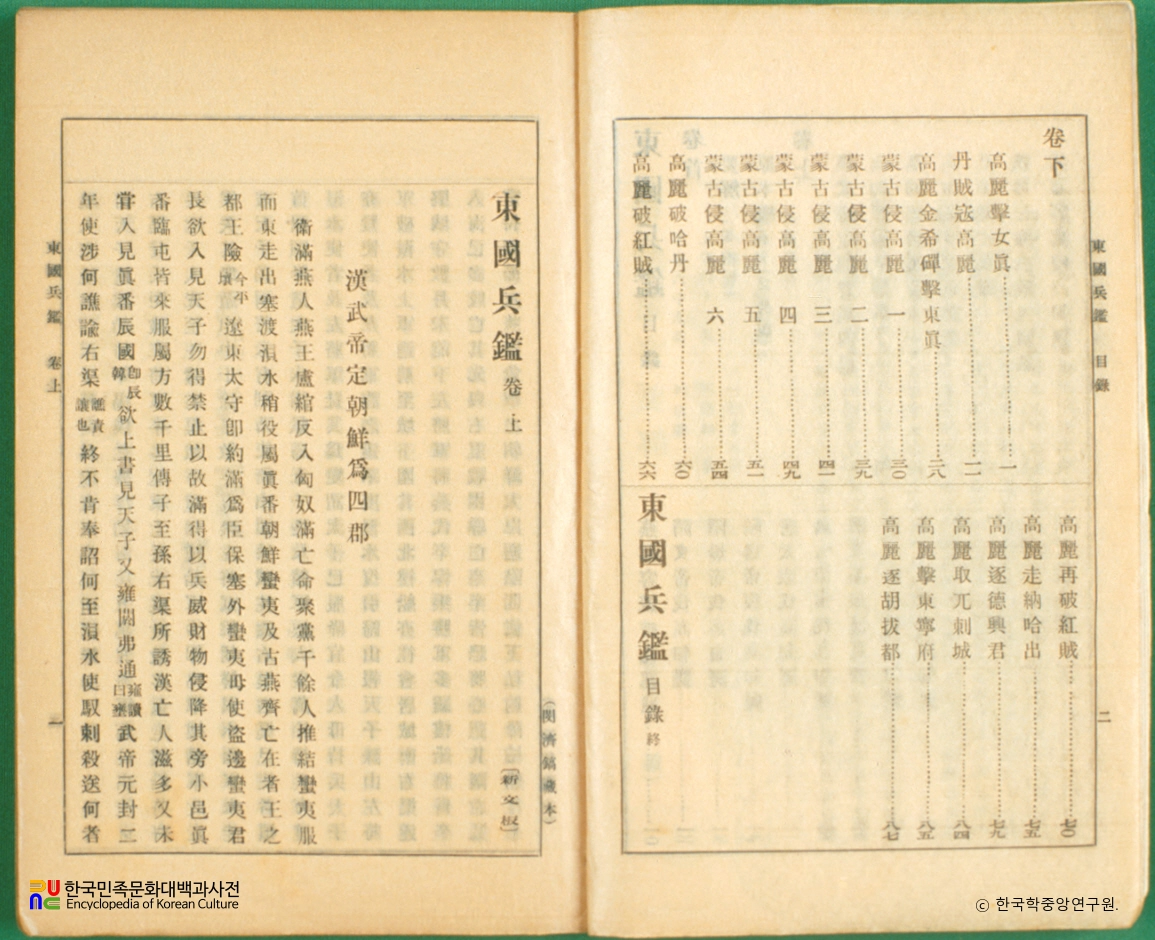 東國兵鑑 目錄
二
卷下
高麗擊女眞 一
丹賊寇高麗 一一
高麗金希磾擊東眞 二八
蒙古侵高麗 一 三〇
蒙古侵高麗 二 三九
蒙古侵高麗 三 四一
蒙古侵高麗 四 四九
蒙古侵高麗 五 五一
蒙古侵高麗 六 五四
高麗破哈丹 六〇
高麗破紅賊 六六
高麗再破紅賊 七〇
高麗走納哈出 七五
高麗逐德興君 七九
高麗取兀剌城 八四
高麗擊東寧府 八五
高麗逐胡拔都 八七
東國兵鑑 目錄 終
(閔濟鎬藏本)
東國兵鑑 卷上
(新文板)
漢武帝定朝鮮爲四郡
衛滿燕人燕王盧綰反入匈奴滿亡命聚黨千餘人推結蠻夷服
而東走出塞渡浿水稍役屬眞番朝鮮蠻夷及古燕齊亡在者王之
都王險今平壤遼東太守卽約滿爲臣保塞外蠻夷毋使盜邊蠻夷君
長欲入見天子勿得禁止以故滿得以兵威財物侵降其旁小邑眞
番臨屯皆來服屬方數千里傳子至孫右渠所誘漢亡人滋多又未
嘗入見眞番辰國卽辰韓欲上書見天子又雍閼弗通雍讀曰壅武帝元封二
年使涉何譙諭右渠譙責讓也終不肯奉詔何至浿水使馭刺殺送何者
東國兵鑑 卷上
一
한국민족문화대백과사전
Encyclopedia of Korean Culture
ⓒ 한국학중앙연구원.